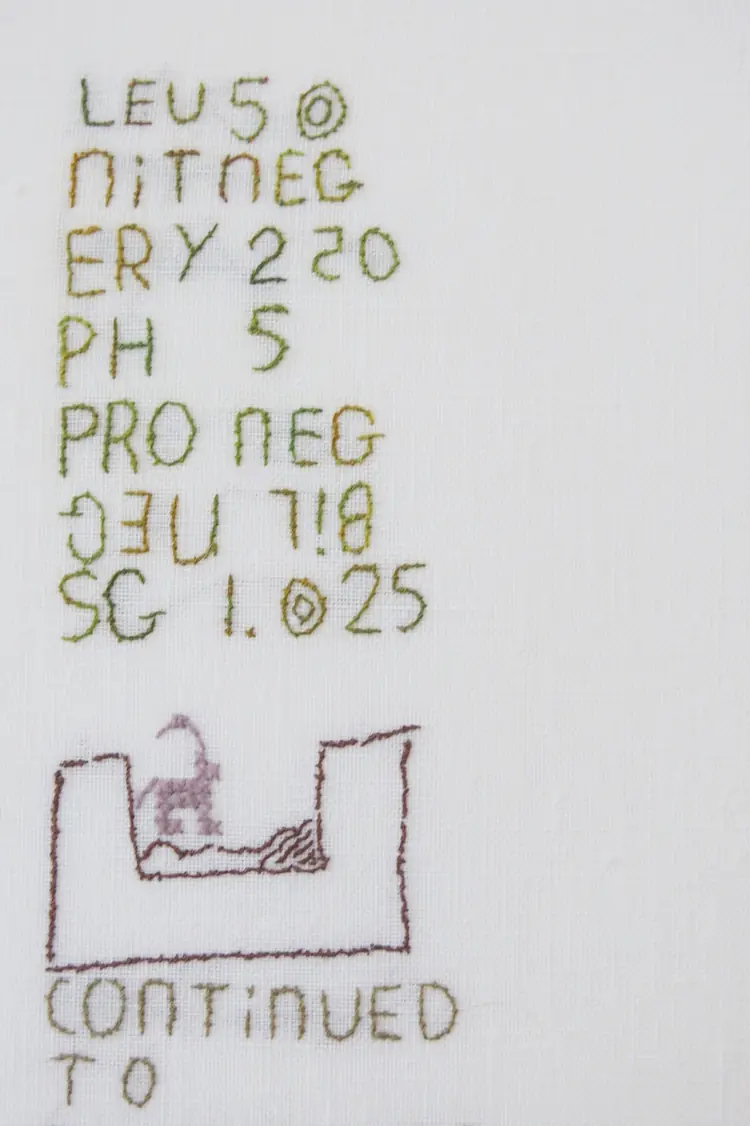 LEU 50
NiT NEG
ERY 250
PH 5
PRO NEG
BiL NEG
SG 1.025
CONTiNUED
TO